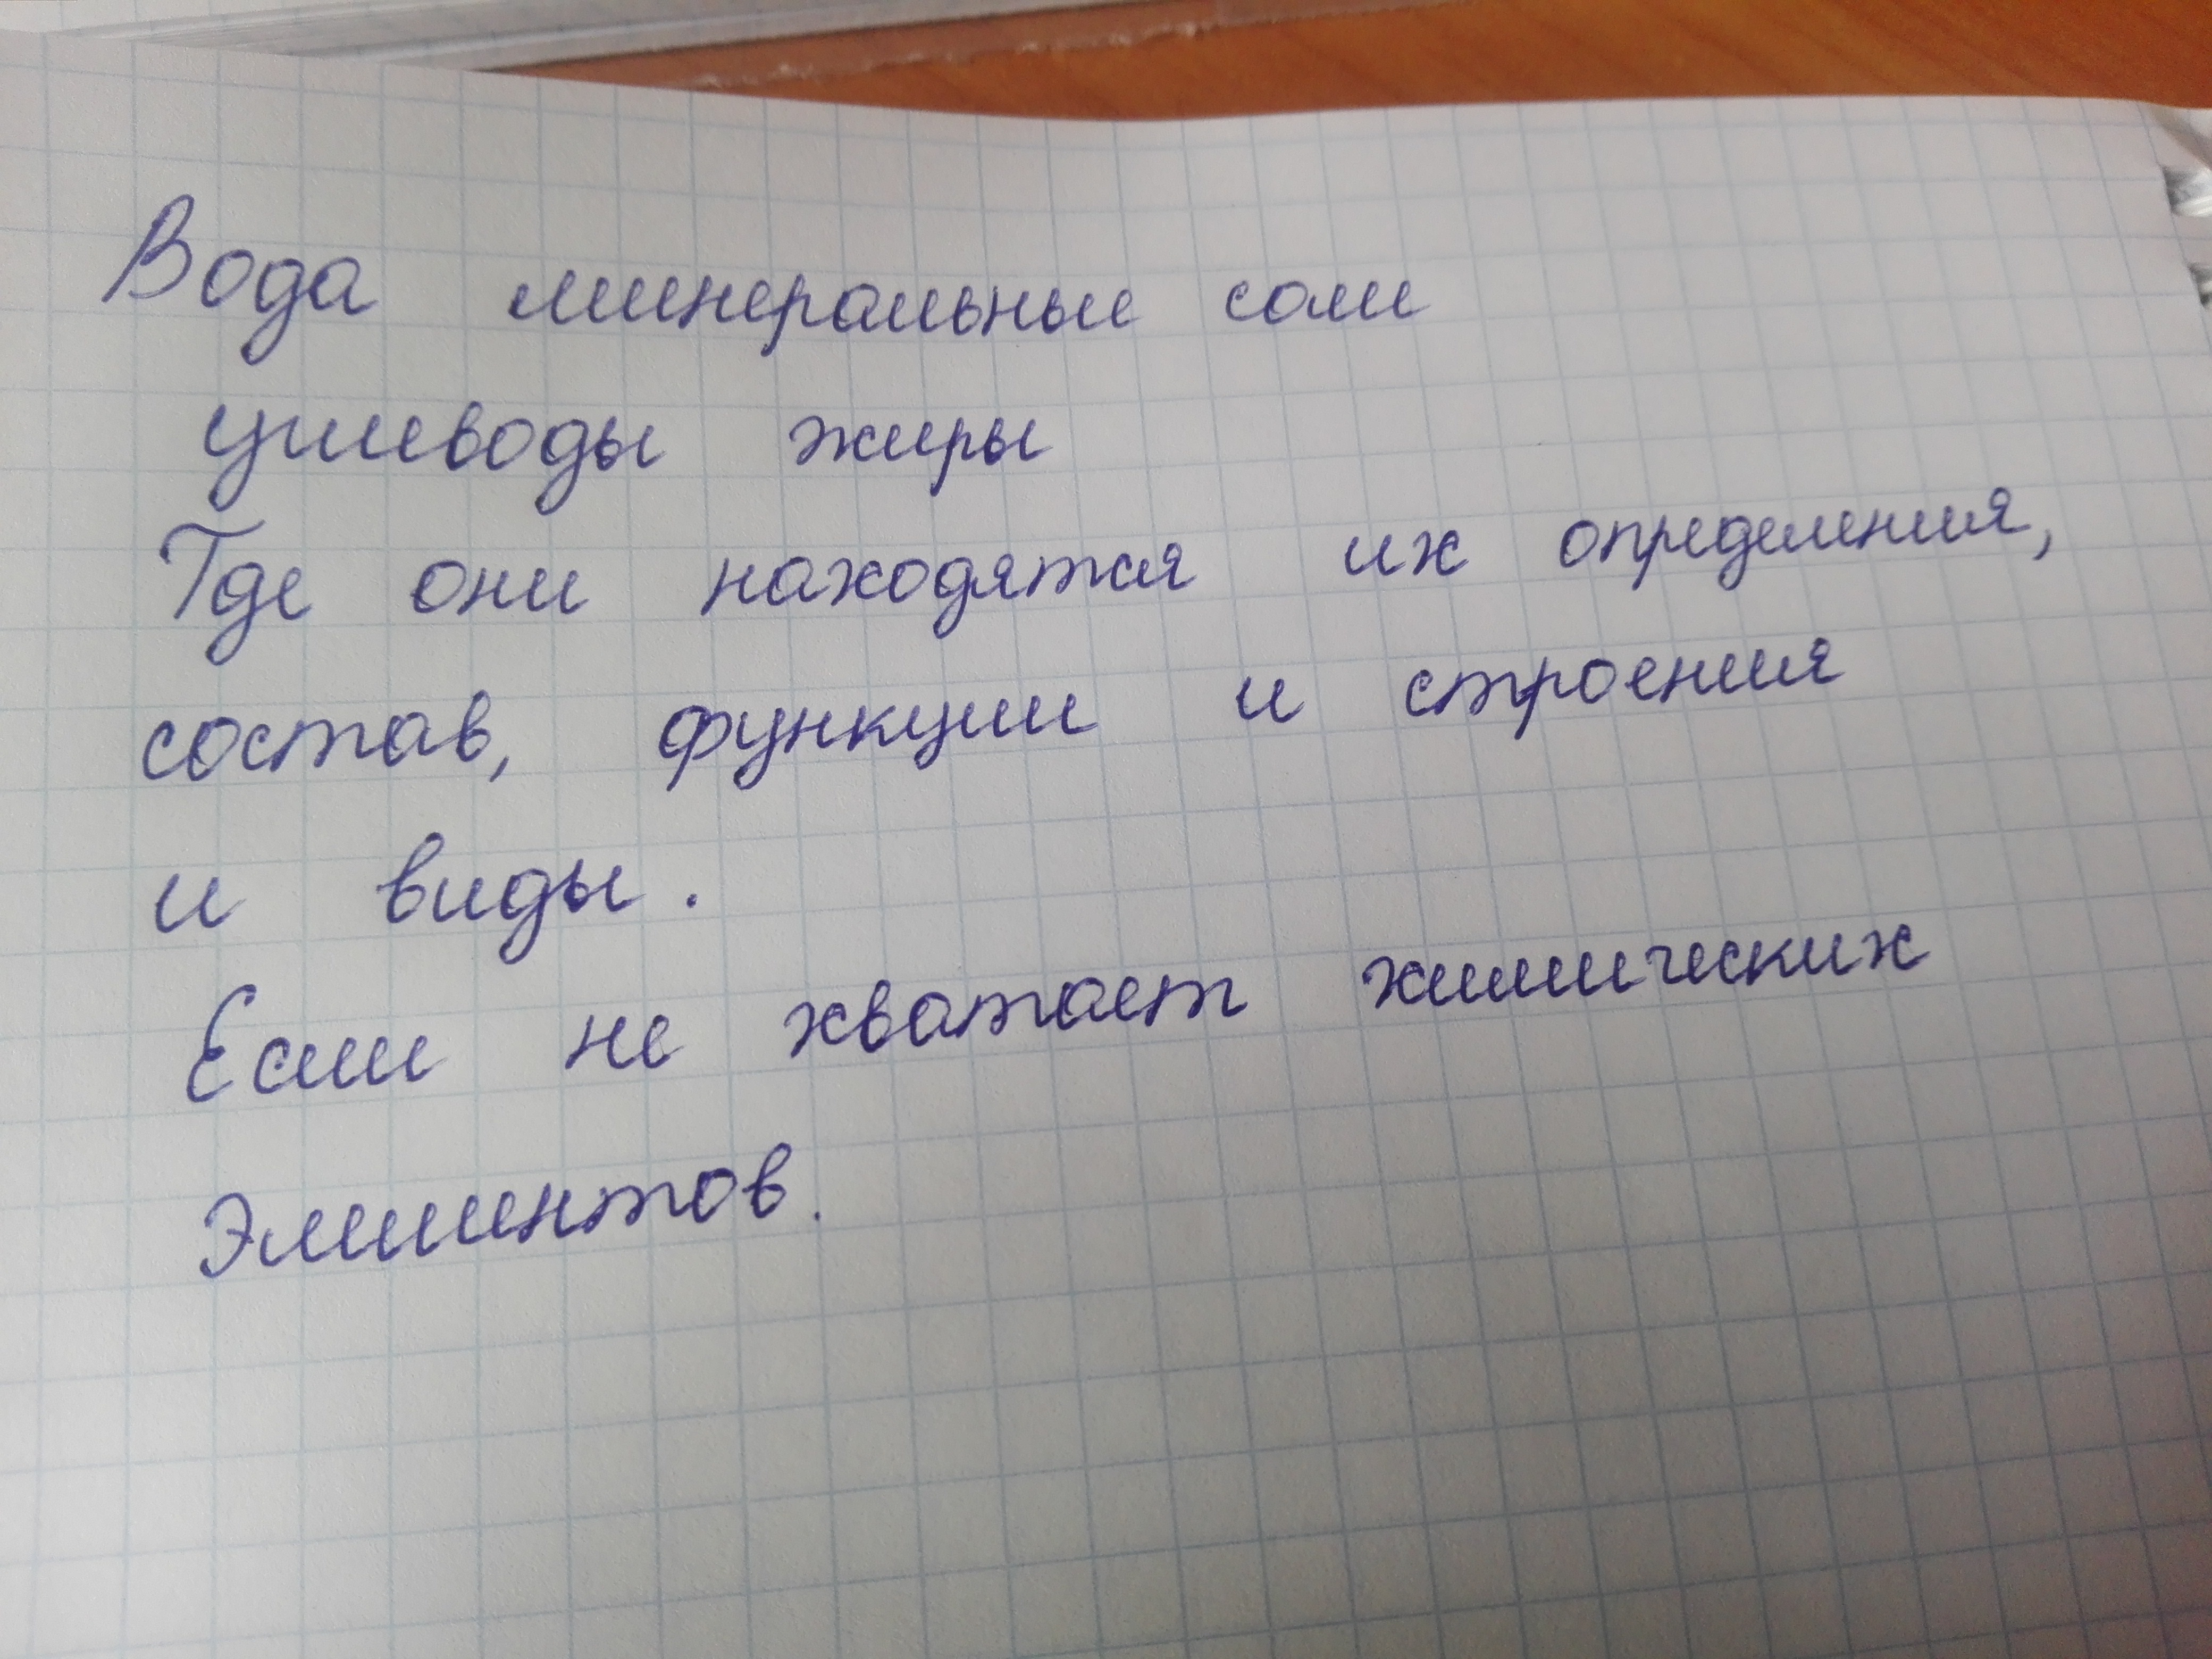 Вода минеральные соли
углеводы жиры
Где они находятся их определения,
состав, функции и строения
и виды.
Если не хватает химических
элиминтов.